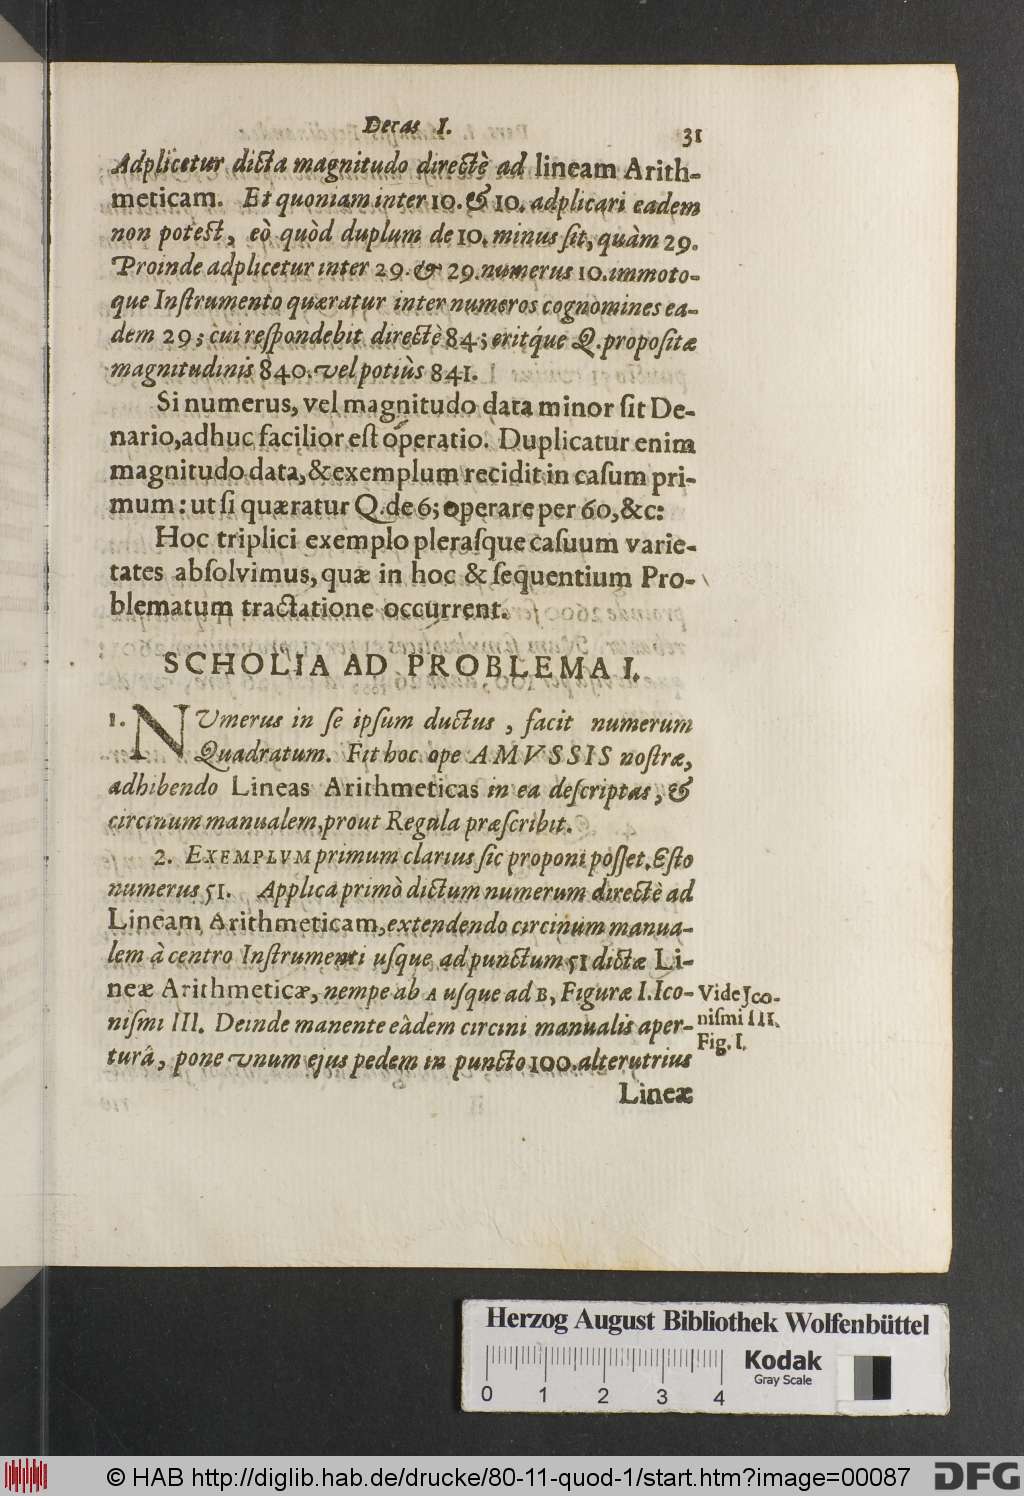 Decas I. 31
Adplicetur dicta magnitudo directè ad lineam Arith-
meticam. Et quoniam inter 10. & 10. adplicari eadem
non potest, eò quòd duplum de 10. minus sit, quàm 29.
Proinde adplicetur inter 29. & 29. numerus 10. immoto-
que Inſtrumento quæratur inter numeros cognomines ea-
dem 29; cui reſpondebit directè 84; eritq́ue Q. propoſitæ
magnitudinis 840. vel potiùs 841.
Si numerus, vel magnitudo data minor ſit De-
nario, adhuc facilior eſt operatio. Duplicatur enim
magnitudo data, & exemplum recidit in caſum pri-
mum: ut ſi quæratur Q. de 6; operare per 60, &c:
Hoc triplici exemplo pleraſque caſuum varie-
tates abſolvimus, quæ in hoc & ſequentium Pro-
blematum tractatione occurrent.
SCHOLIA AD PROBLEMA I.
1. NUmerus in ſe ipſum ductus, facit numerum
Quadratum. Fit hoc ope AMVSSIS noſtræ,
adhibendo Lineas Arithmeticas in ea deſcriptas, &
circinum manualem, prout Regula præſcribit.
2. EXEMPLVM primum clarius ſic proponi poſſet. Eſto
numerus 51. Applica primò dictum numerum directè ad
Lineam Arithmeticam, extendendo circinum manua-
lem à centro Inſtrumenti uſque ad punctum 51 dictæ Li-
neæ Arithmeticæ, nempe ab A uſque ad B, Figuræ I. Ico-
niſmi III. Deinde manente eâdem circini manualis aper-
turâ, pone vnum ejus pedem in puncto 100. alterutrius
Lineæ
Vide Ico-
niſmi III.
Fig. I.
Herzog August Bibliothek Wolfenbüttel
Kodak
Gray Scale
0 1 2 3 4
© HAB http://diglib.hab.de/drucke/80-11-quod-1/start.htm?image=00087
DFG